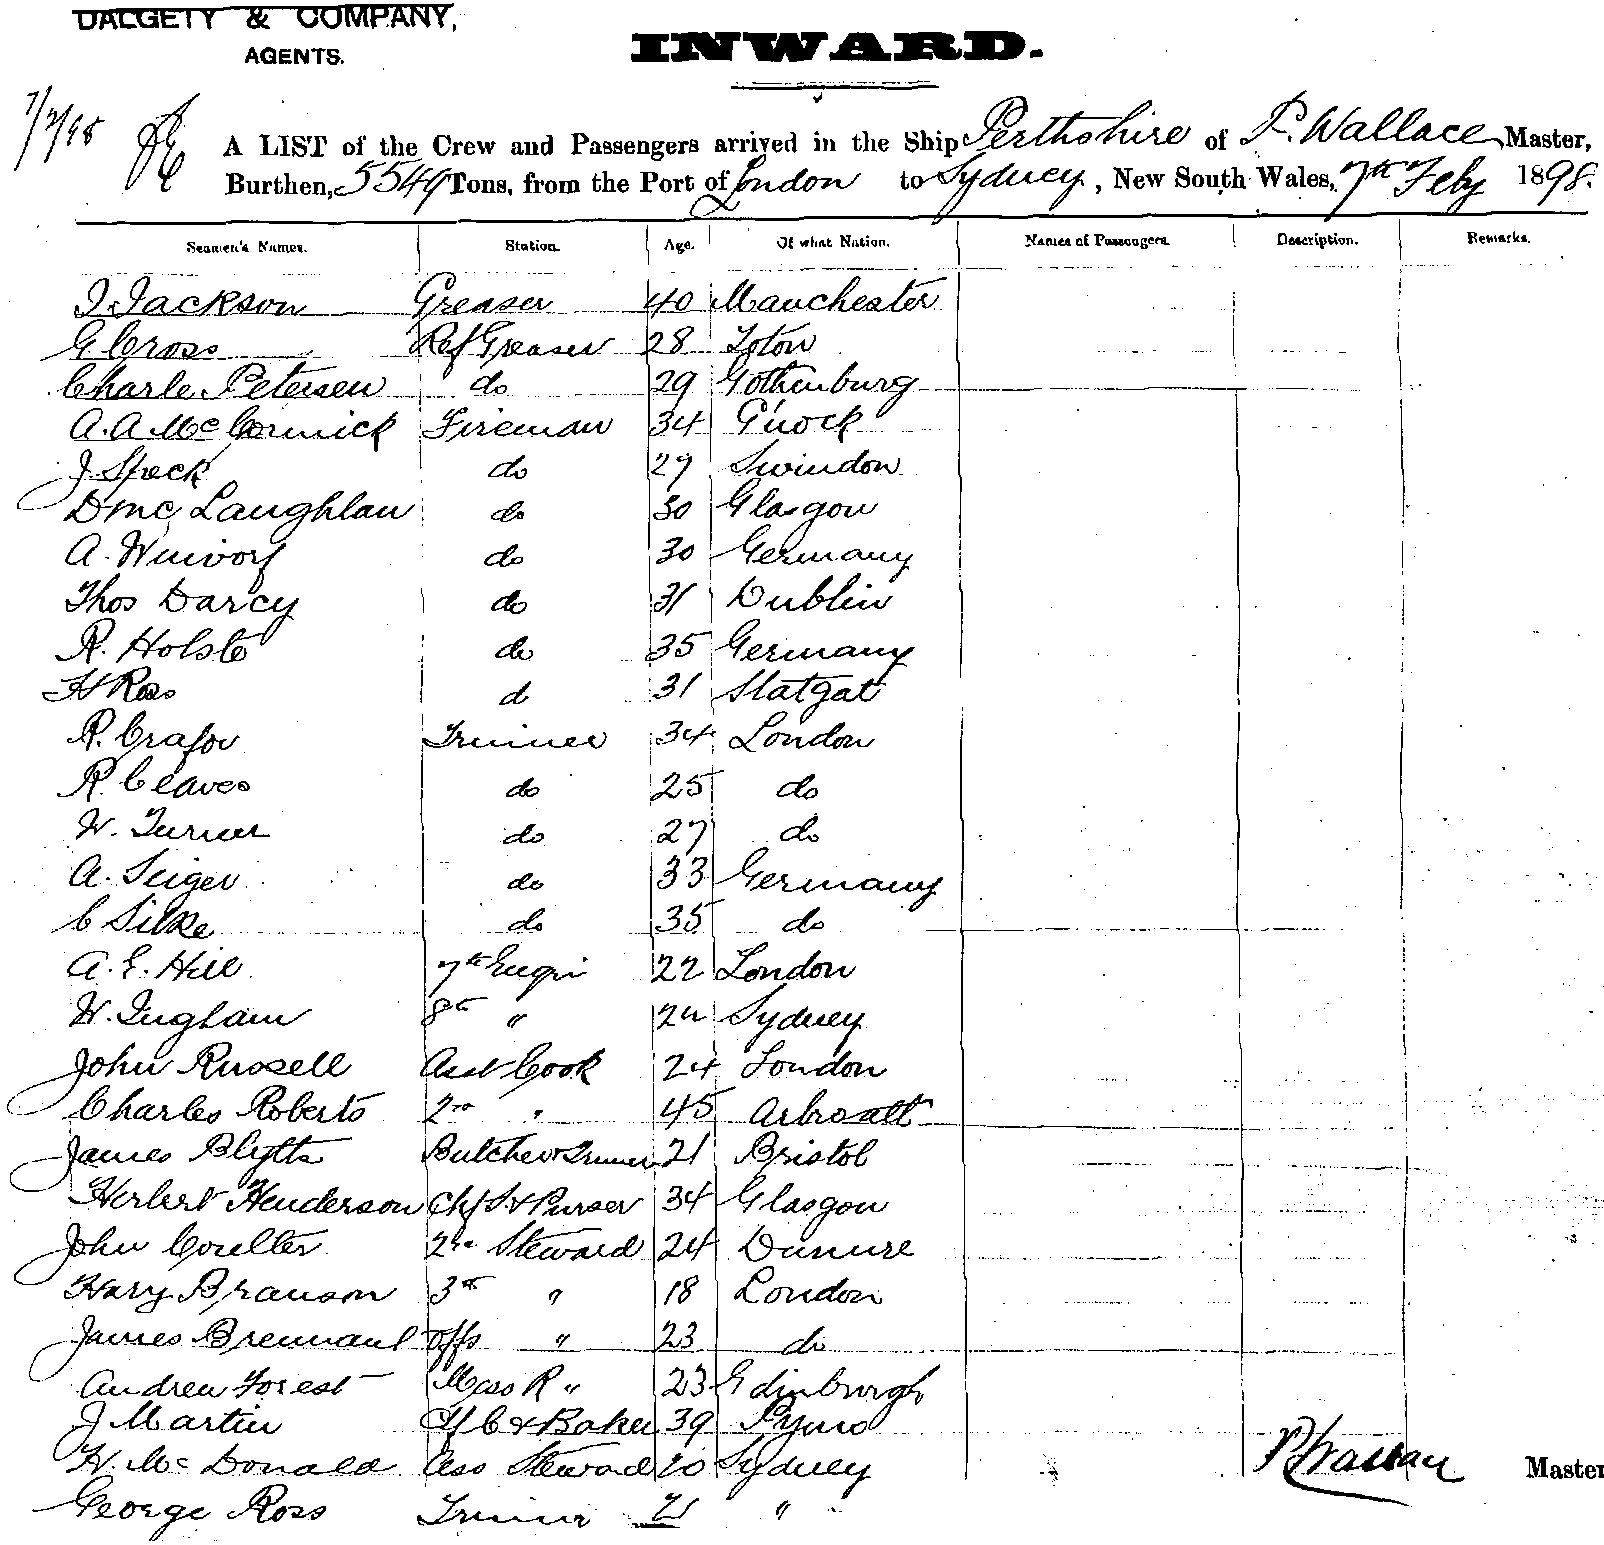 DALGETY & COMPANY,
AGENTS.
INWARD.
7/2/98
A LIST of the Crew and Passengers arrived in the Ship Perthshire of P. Wallace, Master,
Burthen, 5549 Tons, from the Port of London to Sydney, New South Wales, 7th Feby 1898.
Seamen's Names. Station. Age. Of what Nation. Names of Passengers. Description. Remarks.
J. Jackson Greaser 40 Manchester
G Cross Ref Greaser 28
Charle Petersen do 29 Gothenburg
A. A. McCormick Fireman 34 G'nock
J. Speck do 29 Swindon
D Mc Laughlan do 30 Glasgow
A. do 30 Germany
Thos Darcy do 31 Dublin
R. Holste do 35 Germany
H Ross d 31 Statgat
R. Trimmer 34 London
R. Cleaves do 25 do
W. Turner do 27 do
A. Seiger do 33 Germany
C Silke do 35 do
A. E. Hill 7th Engr 22 London
W. Ingham 8th " Sydney
John Russell Asst Cook 24 London
Charles Roberts 2nd " 45 Arbroath
James Blyth Butcher & Trimmer 21 Bristol
Herbert Henderson Chf S. & Purser 34 Glasgow
John Coulter 2nd Steward 24 Dunure
Harry Branson 3rd " 18 London
James Brennand Offs " 23 do
Andrew Forest Mess R " 23 Edinburgh
J Martin & Baker 39
H. McDonald Ass Steward 20 Sydney
George Ross Trimmer 21 "
P Wallace Master